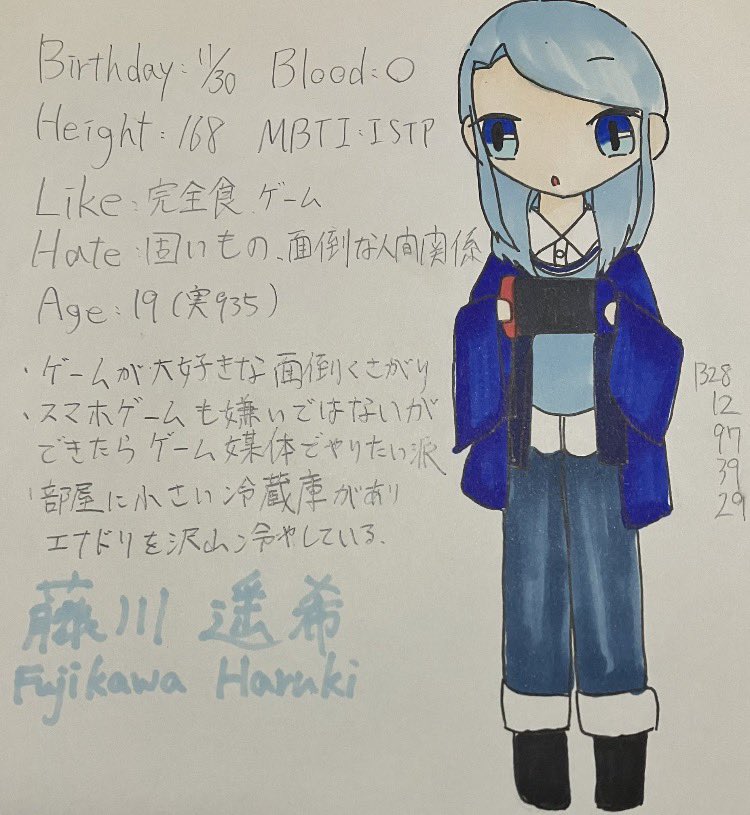 Birthday: 11/30 Blood: O
Height: 168 MBTI: ISTP
Like: 完全食、ゲーム
Hate: 固いもの、面倒な人間関係
Age: 19 (実935)
・ゲームが大好きな面倒くさがり
・スマホゲームも嫌いではないが
できたらゲーム媒体でやりたい派
・部屋に小さい冷蔵庫があり
エナドリを沢山冷やしている.
藤川 遥希
Fujikawa Haruki
B28
12
97
39
29